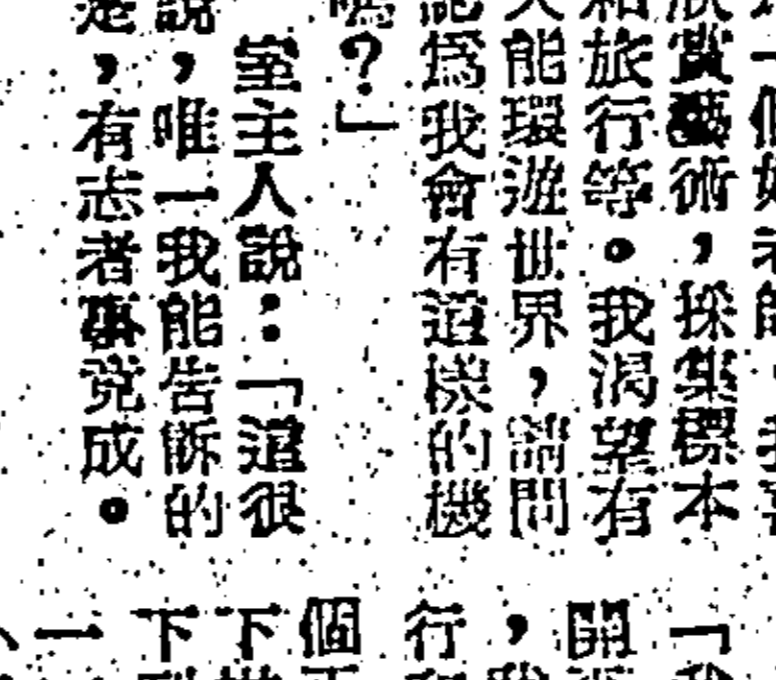 一個
欣賞藝術，採集標本
和旅行等。我渴望有
天能環遊世界，請問
認爲我會有這樣的機
嗎？」
室主人說：「這很
說，唯一我能告訴的
是，有志者事竟成。
「
開
，
行
個
下
下
一